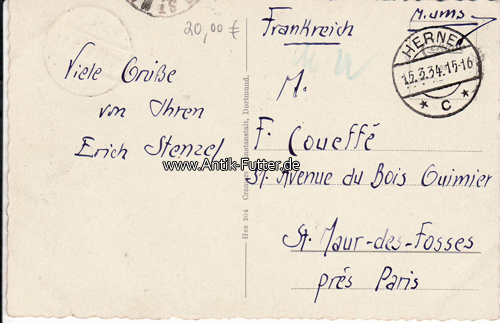 20,00 €
Viele Grüße
von Ihren
Erich Stenzel
Hes 204 Cramers Kunstanstalt, Dortmund.
www.Antik-Futter.de
Frankreich
HERNE
15.3.34.15-16
* C *
M.
F. Coueffé
St. Avenue du Bois Guimier
St. Maur-des-Fosses
prés Paris